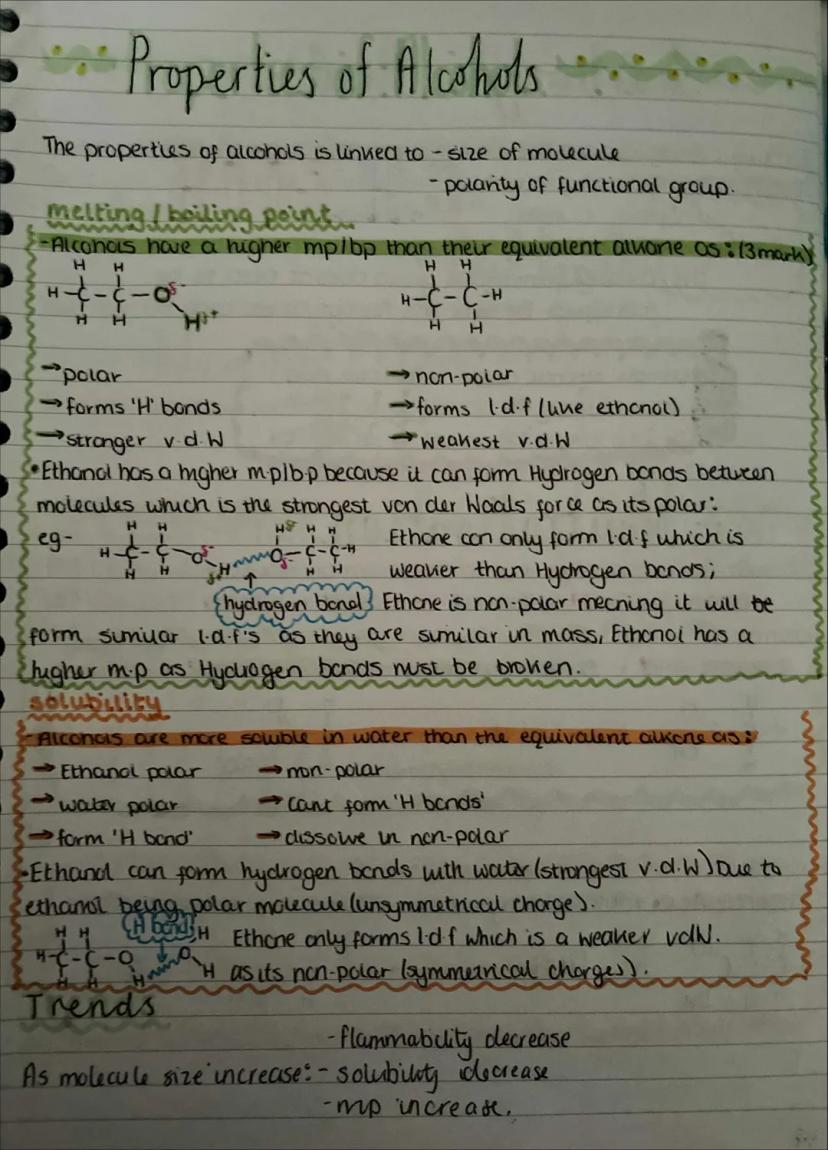 Properties of Alcohols
The properties of alcohols is linked to - size of molecule
- polarity of functional group.
melting / boiling point
- Alcohols have a higher mp/bp than their equivalent alkane as: (3mark)
H H
H - C - C - O δ-
H H H δ+
H H
H - C - C - H
H H
→ polar → non-polar
→ forms 'H' bonds → forms l.d.f (like ethanol)
→ stronger v.d.W → weakest v.d.W
• Ethanol has a higher m.p/b.p because it can form Hydrogen bonds between
molecules which is the strongest van der Waals force as its polar:
eg- H H H δ+ H H Ethane can only form l.d.f which is
H - C - C - O δ- O - C - C - H weaker than Hydrogen bonds;
H H H δ+ δ- H H
hydrogen bond Ethane is non-polar meaning it will be
form similar l.d.f's as they are similar in mass, Ethanol has a
higher m.p as Hydrogen bonds must be broken.
solubility
- Alcohols are more soluble in water than the equivalent alkane as:
→ Ethanol polar → non-polar
→ water polar → cant form 'H bonds'
→ form 'H bond' → dissolve in non-polar
• Ethanol can form hydrogen bonds with water (strongest v.d.W) Due to
ethanol being polar molecule (unsymmetrical charge).
H H H bond H Ethane only forms l.d.f which is a weaker vdW.
H - C - C - O O H as its non-polar (symmetrical charges).
H H H
Trends
- flammability decrease
As molecule size increase: - solubility decrease
- mp increase.